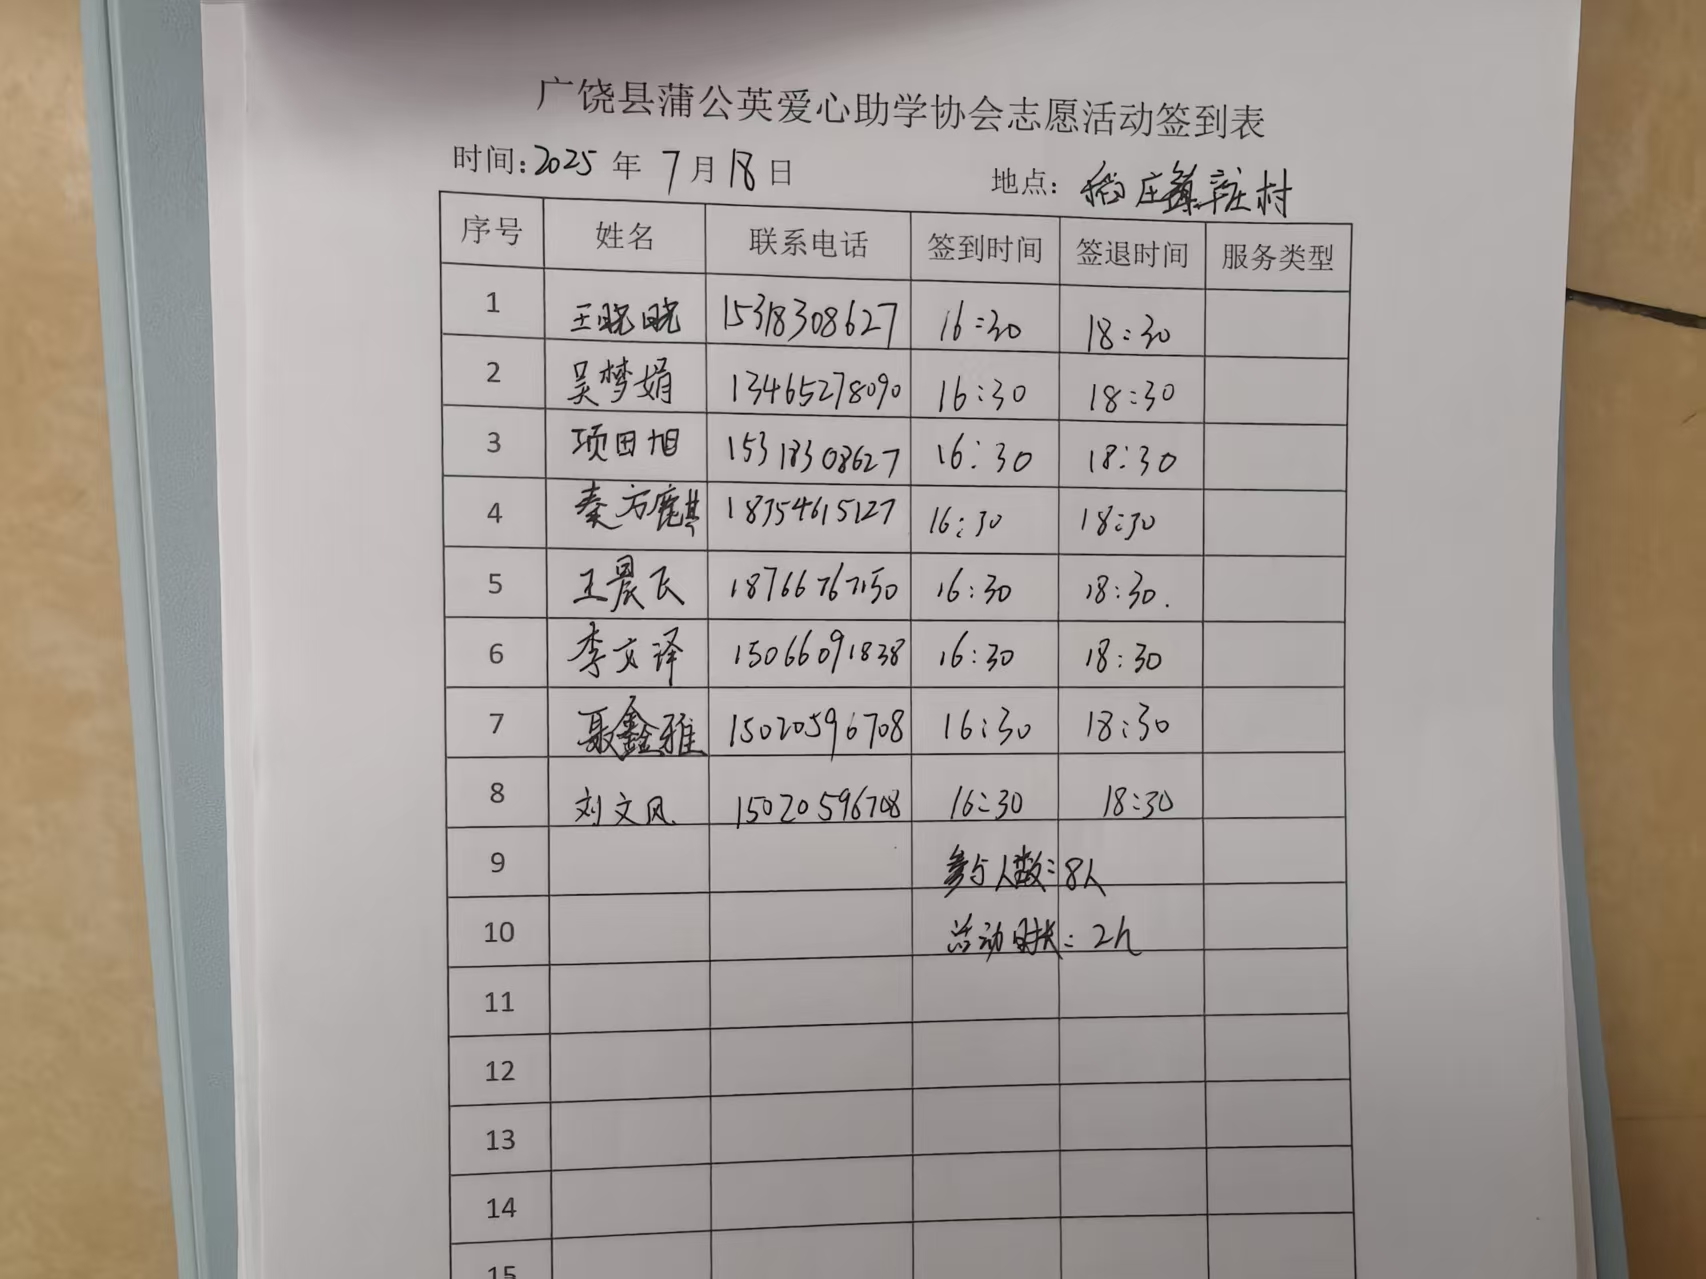 广饶县蒲公英爱心助学协会志愿活动签到表
时间:2025 年 7 月 18 日 地点: 稻庄镇辛庄村
序号 姓名 联系电话 签到时间 签退时间 服务类型
1 王晓晓 15318308627 16:30 18:30
2 吴梦娟 13465278090 16:30 18:30
3 项田旭 15318308627 16:30 18:30
4 秦方麒 18354615127 16:30 18:30
5 王晨飞 16:30 18:30.
6 李文译 15066091838 16:30 18:30
7 聂鑫雅 15020596708 16:30 18:30
8 刘文凤 15020596708 16:30 18:30
9 参与人数:8人
10 活动时长: 2h
11
12
13
14
15